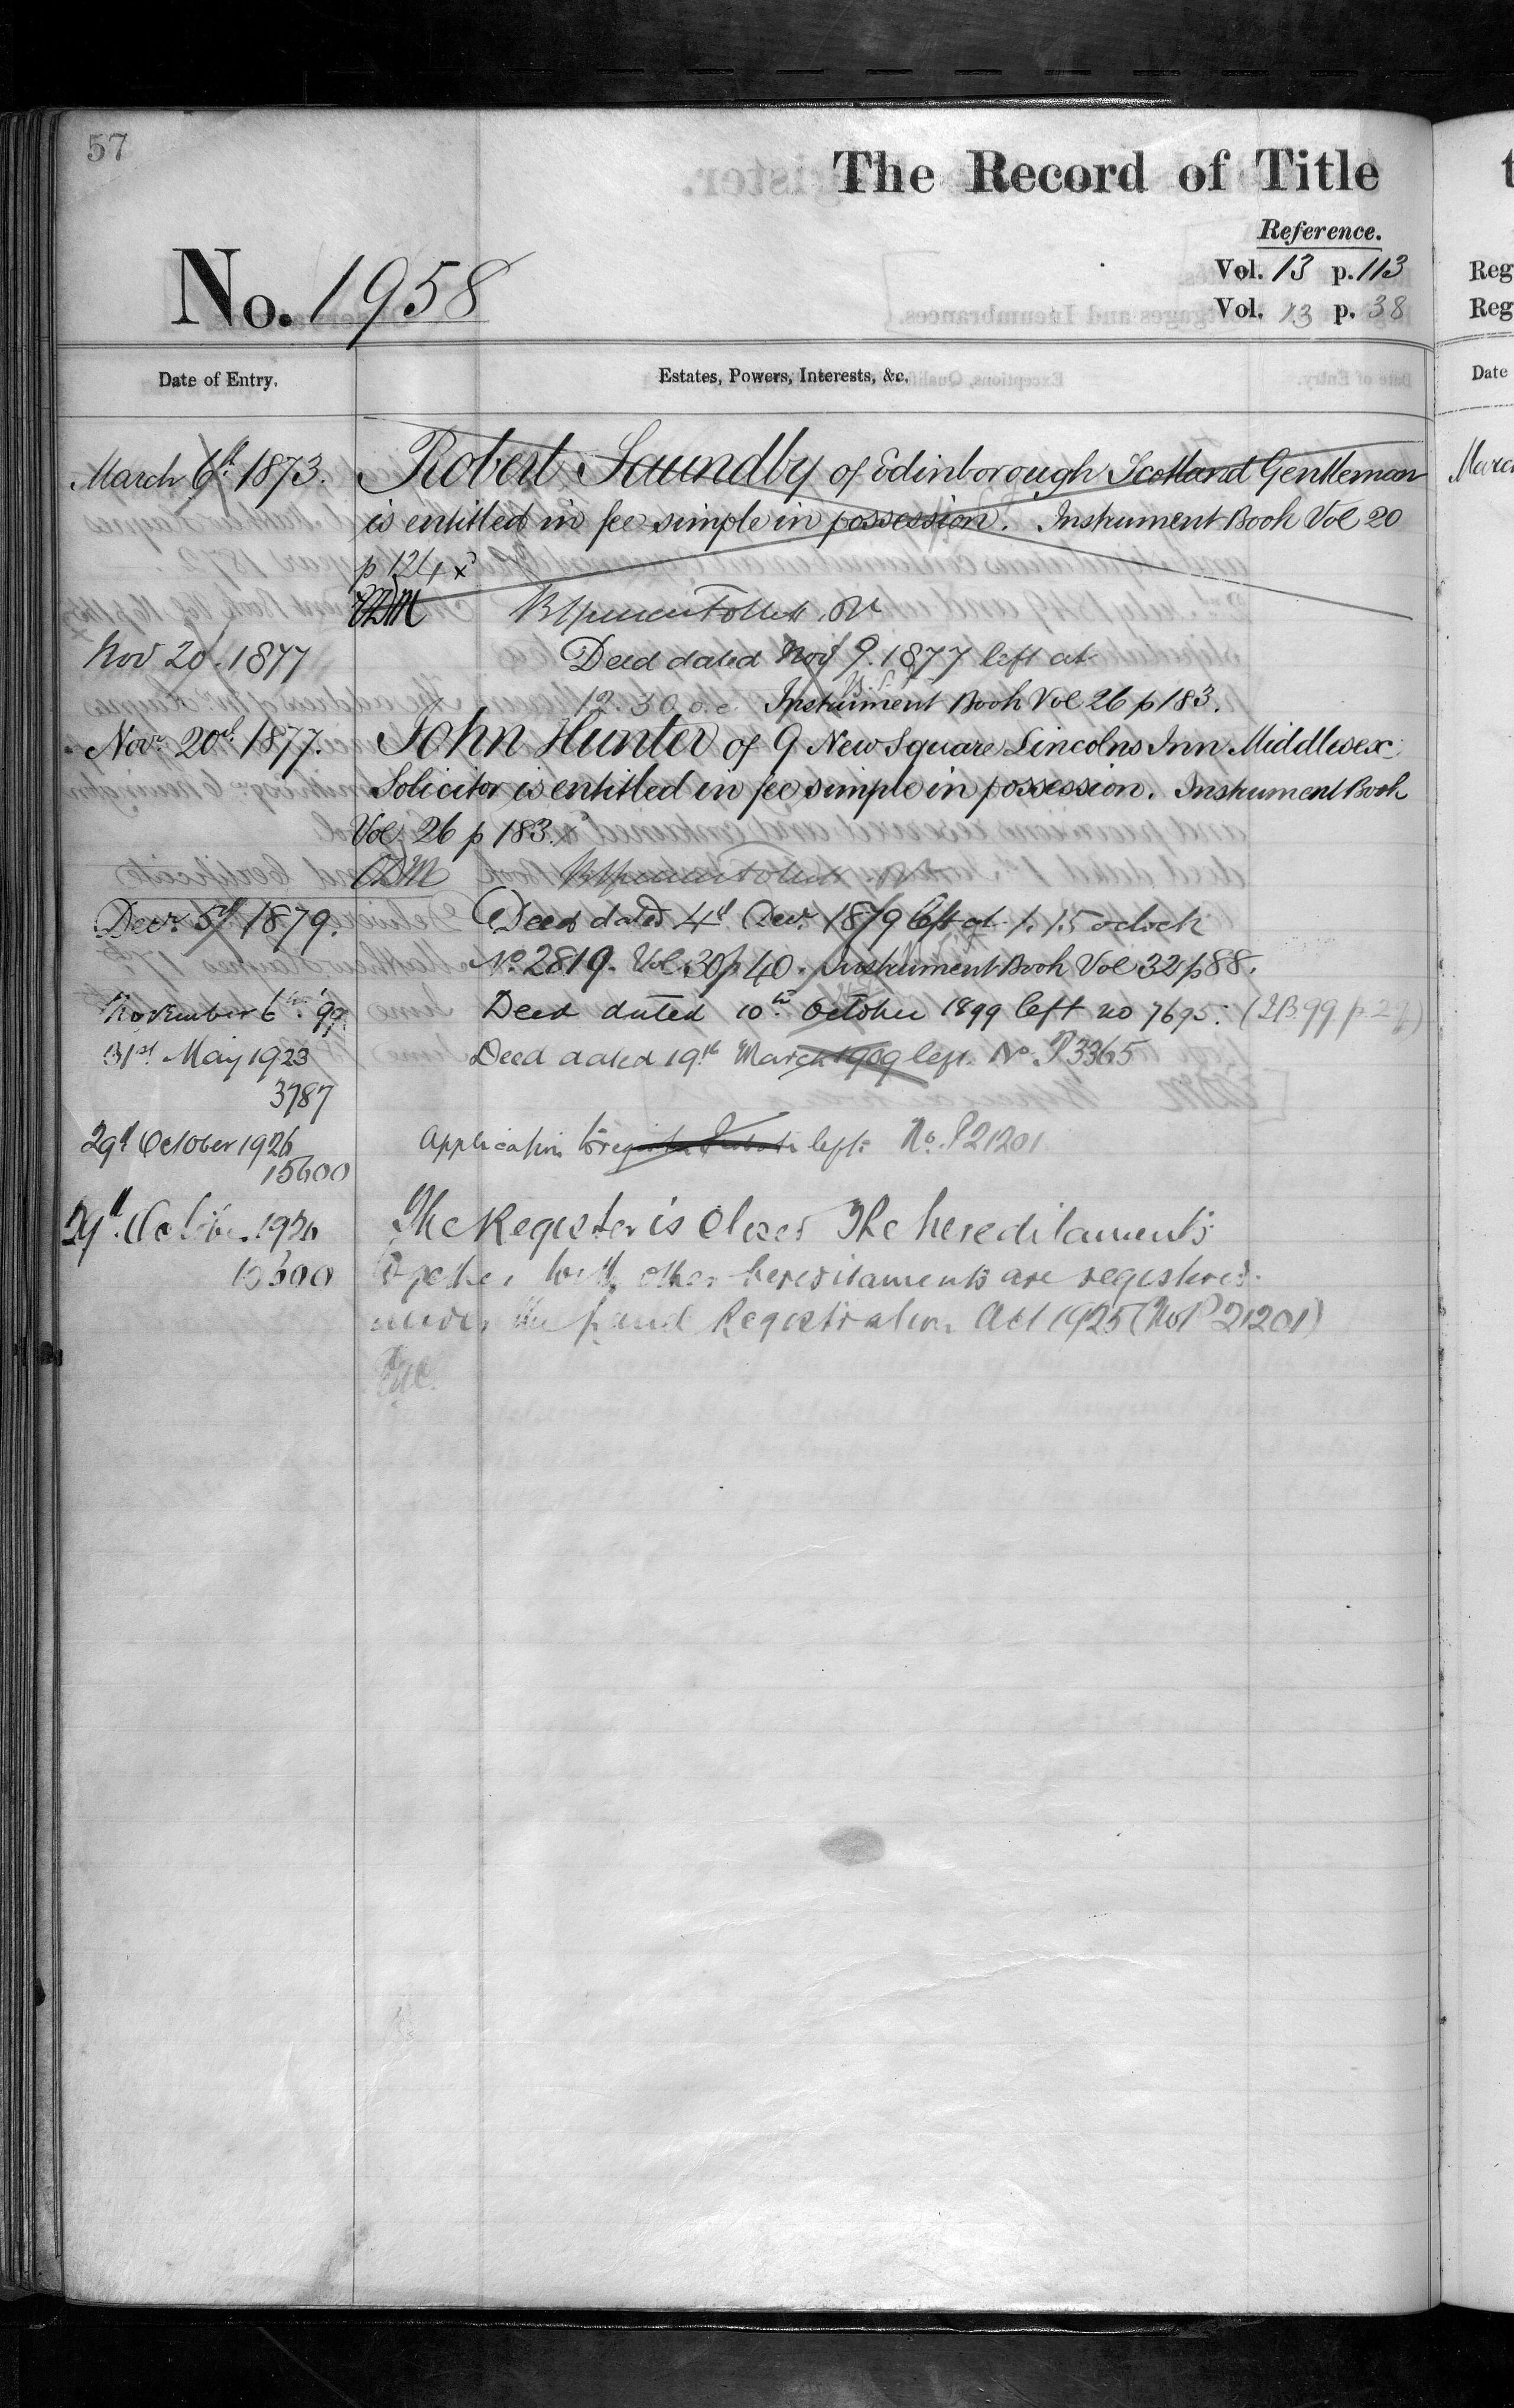 57
The Record of Title
Reference.
No. 1958
Vol. 13 p. 113
Vol. 13 p. 38
Date of Entry.
Estates, Powers, Interests, &c.
March 6th 1873.
Robert Saundby of Edinborough Scotland Gentleman
is entitled in fee simple in possession. Instrument Book Vol 20
p 124 x
Nov 20. 1877
Deed dated Nov 9. 1877 left at
12.30 o.c. Instrument Book Vol 26 p 183.
Novr 20th 1877.
John Hunter of 9 New Square Lincolns Inn Middlesex
Solicitor is entitled in fee simple in possession. Instrument Book
Vol 26 p 183.
Decr 5th 1879.
Deed dated 4th Decr 1879 left at 1.15 oclock
No 2819. Vol 30 p 40. Instrument Book Vol 32 p 88.
November 6th 99
Deed dated 10th October 1899 left no 7695. (IB 99 p 29)
31st May 1923
Deed dated 19th March 1909 left. No P3365
3787
29th October 1926
Application to left. No. P21201
15600
29th October 1926
The Register is Closed The hereditaments
15600
together with other hereditaments are registered
under the Land Registration Act 1925 (No P 21201)
Reg
Reg
Date